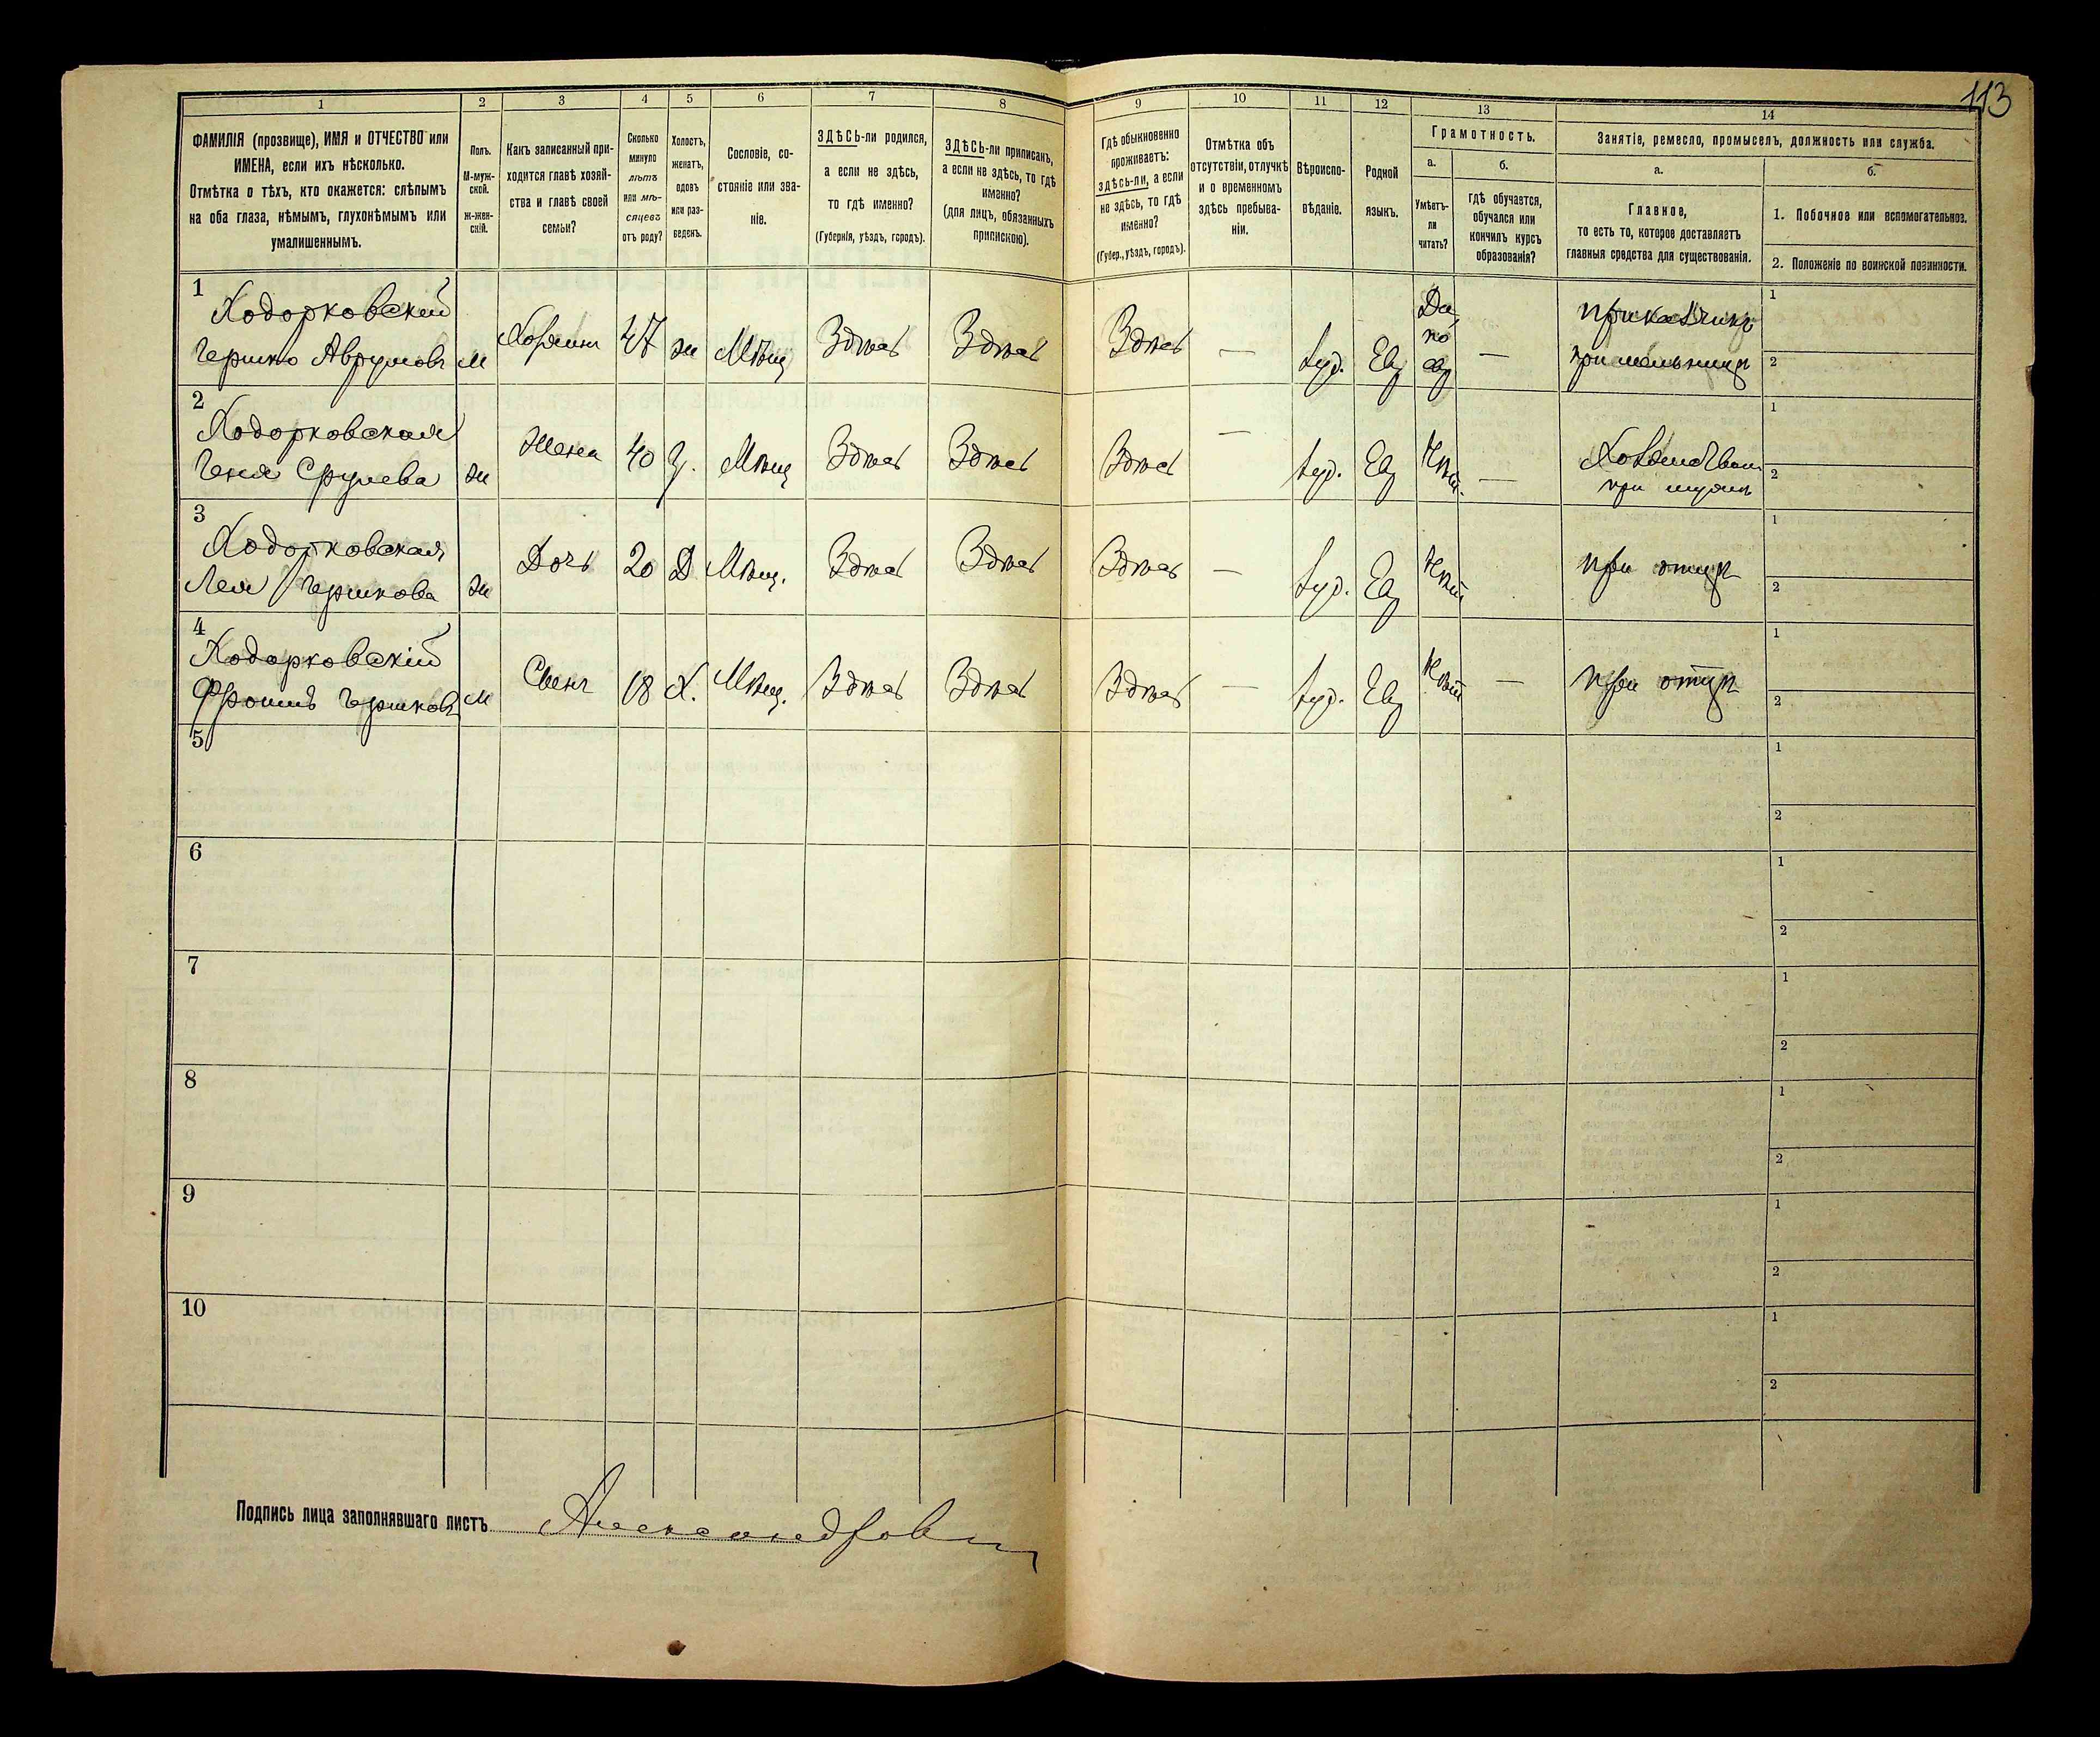 113
1 2 3 4 5 6 7 8 9 10 11 12 13 14
ФАМИЛІЯ (прозвище), ИМЯ и ОТЧЕСТВО или
ИМЕНА, если ихъ нѣсколько.
Отмѣтка о тѣхъ, кто окажется: слѣпымъ
на оба глаза, нѣмымъ, глухонѣмымъ или
умалишеннымъ.
Полъ.
М-муж-
ской.
Ж-жен-
скій.
Какъ записанный при-
ходится главѣ хозяй-
ства и главѣ своей
семьи?
Сколько
минуло
лѣтъ
или мѣ-
сяцевъ
отъ роду?
Холостъ,
женатъ,
вдовъ
или раз-
веденъ.
Сословіе, со-
стояніе или зва-
ніе.
ЗДѢСЬ-ли родился,
а если не здѣсь,
то гдѣ именно?
(Губернія, уѣздъ, городъ).
ЗДѢСЬ-ли приписанъ,
а если не здѣсь, то гдѣ
именно?
(для лицъ, обязанныхъ
припискою).
Гдѣ обыкновенно
проживаетъ:
здѣсь-ли, а если
не здѣсь, то гдѣ
именно?
(Губер., уѣздъ, городъ).
Отмѣтка объ
отсутствіи, отлучкѣ
и о временномъ
здѣсь пребыва-
ніи.
Вѣроиспо-
вѣданіе.
Родной
языкъ.
Грамотность.
а.
Умѣетъ-
ли
читать?
б.
гдѣ обучается,
обучался или
кончилъ курсъ
образованія?
Занятіе, ремесло, промыселъ, должность или служба.
а.
Главное,
то есть то, которое доставляетъ
главныя средства для существованія.
б.
1. Побочное или вспомогательное.
2. Положеніе по воинской повинности.
1
Ходорковскій
Гершко Аврумовъ
м
Хозяинъ
47
ж
Мѣщ
Здѣсь
Здѣсь
Здѣсь
—
Іуд.
Ев
Да
по
ев
—
приказчикъ
при мельницѣ
1
2
2
Ходорковская
Геня Срулева
ж
Жена
40
З.
Мѣщ
Здѣсь
Здѣсь
Здѣсь
—
Іуд.
Ев
Нѣт.
—
при мужѣ
1
2
3
Ходорковская
Лея Гершкова
ж
Дочь
20
Д
Мѣщ.
Здѣсь
Здѣсь
Здѣсь
—
Іуд.
Ев
Нѣт
при отцѣ
1
2
4
Ходорковскій
Фроимъ Гершковъ
м
Сынъ
18
Х.
Мѣщ.
Здѣсь
Здѣсь
Здѣсь
—
Іуд.
Ев
Нѣт
—
при отцѣ
1
2
5
1
2
6
1
2
7
1
2
8
1
2
9
1
2
10
1
2
Подпись лица заполнявшаго листъ